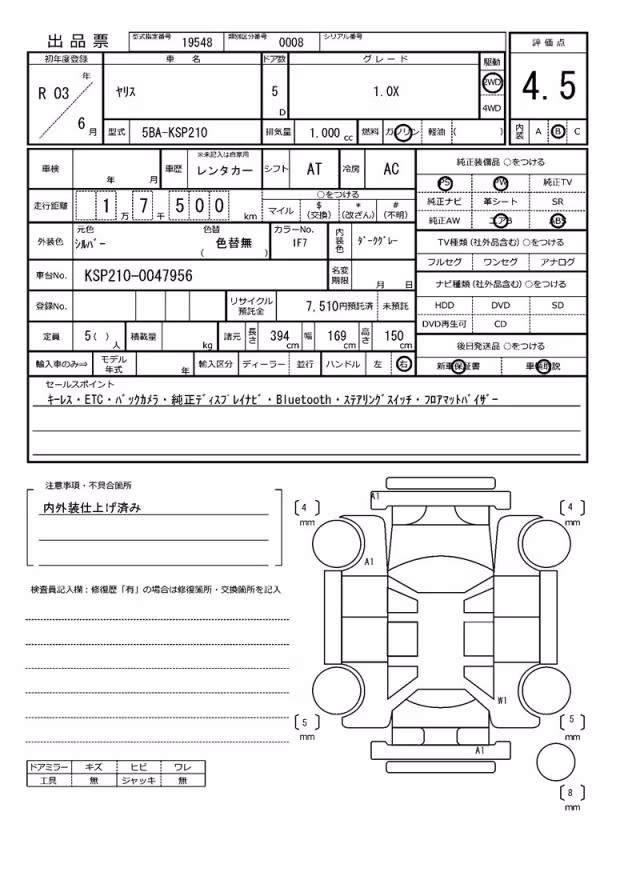 出品票 型式指定番号 19548 類別区分番号 0008 シリアル番号
初年度登録 車名 ドア数 グレード 駆動 評価点
R 03 年 6 月 ヤリス 5 D 1.0X 2WD 4WD 4.5
型式 5BA-KSP210 排気量 1.000 cc 燃料 ガソリン 軽油 ( ) 内装 A B C
車検 年 月 車歴 ※未記入は自家用 レンタカー シフト AT 冷房 AC 純正装備品 ○をつける
PS PW 純正TV
走行距離 1 万 7 千 5 0 0 km ○をつける 純正ナビ 革シート SR
マイル $ (交換) * (改ざん) # (不明) 純正AW エアB ABS
外装色 元色 シルバー 色替 色替無 ( ) カラーNo. 1F7 内装色 ダークグレー TV種類 (社外品含む) ○をつける
フルセグ ワンセグ アナログ
車台No. KSP210-0047956 名変期限 月 日 ナビ種類 (社外品含む) ○をつける
登録No. リサイクル預託金 7,510円預託済 未預託 HDD DVD SD
DVD再生可 CD
定員 5( ) 人 積載量 kg 諸元 長さ 394 cm 幅 169 cm 高さ 150 cm 後日発送品 ○をつける
輸入車のみ⇒ モデル年式 年 輸入区分 ディーラー 並行 ハンドル 左 右 新車保証書 車輌取説
セールスポイント
キーレス・ETC・バックカメラ・純正ディスプレイナビ・Bluetooth・ステアリングスイッチ・フロアマットバイザー
注意事項・不具合箇所
内外装仕上げ済み
検査員記入欄：修復歴「有」の場合は修復箇所・交換箇所を記入
A1
4 mm
4 mm
A1
W1
5 mm
5 mm
A1
8 mm
ドアミラー キズ ヒビ ワレ
工具 無 ジャッキ 無